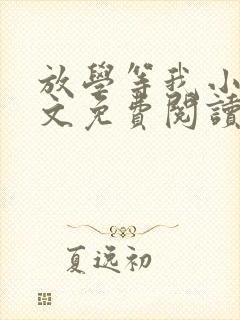 放學等我 小
文免費閱讀
夏逸初